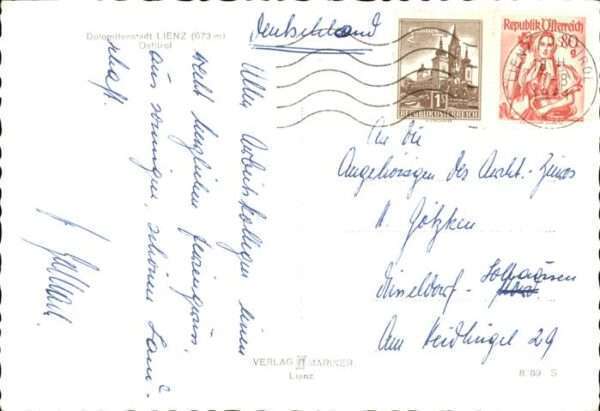 Dolomitenstadt LIENZ (673 m)
Osttirol
Deutschland
Allen Arbeitskollegen einen
recht herzlichen Feriengruss
aus sonniger, schöner Land-
schaft.
REPUBLIK ÖSTERREICH
Republik Österreich
80
LIENZ
An die
Angehörigen des Archt.-Büros
H. Götzken
Düsseldorf-Holthausen
Am Heidhügel 29
VERLAG MARINER
Lienz
B 89 S